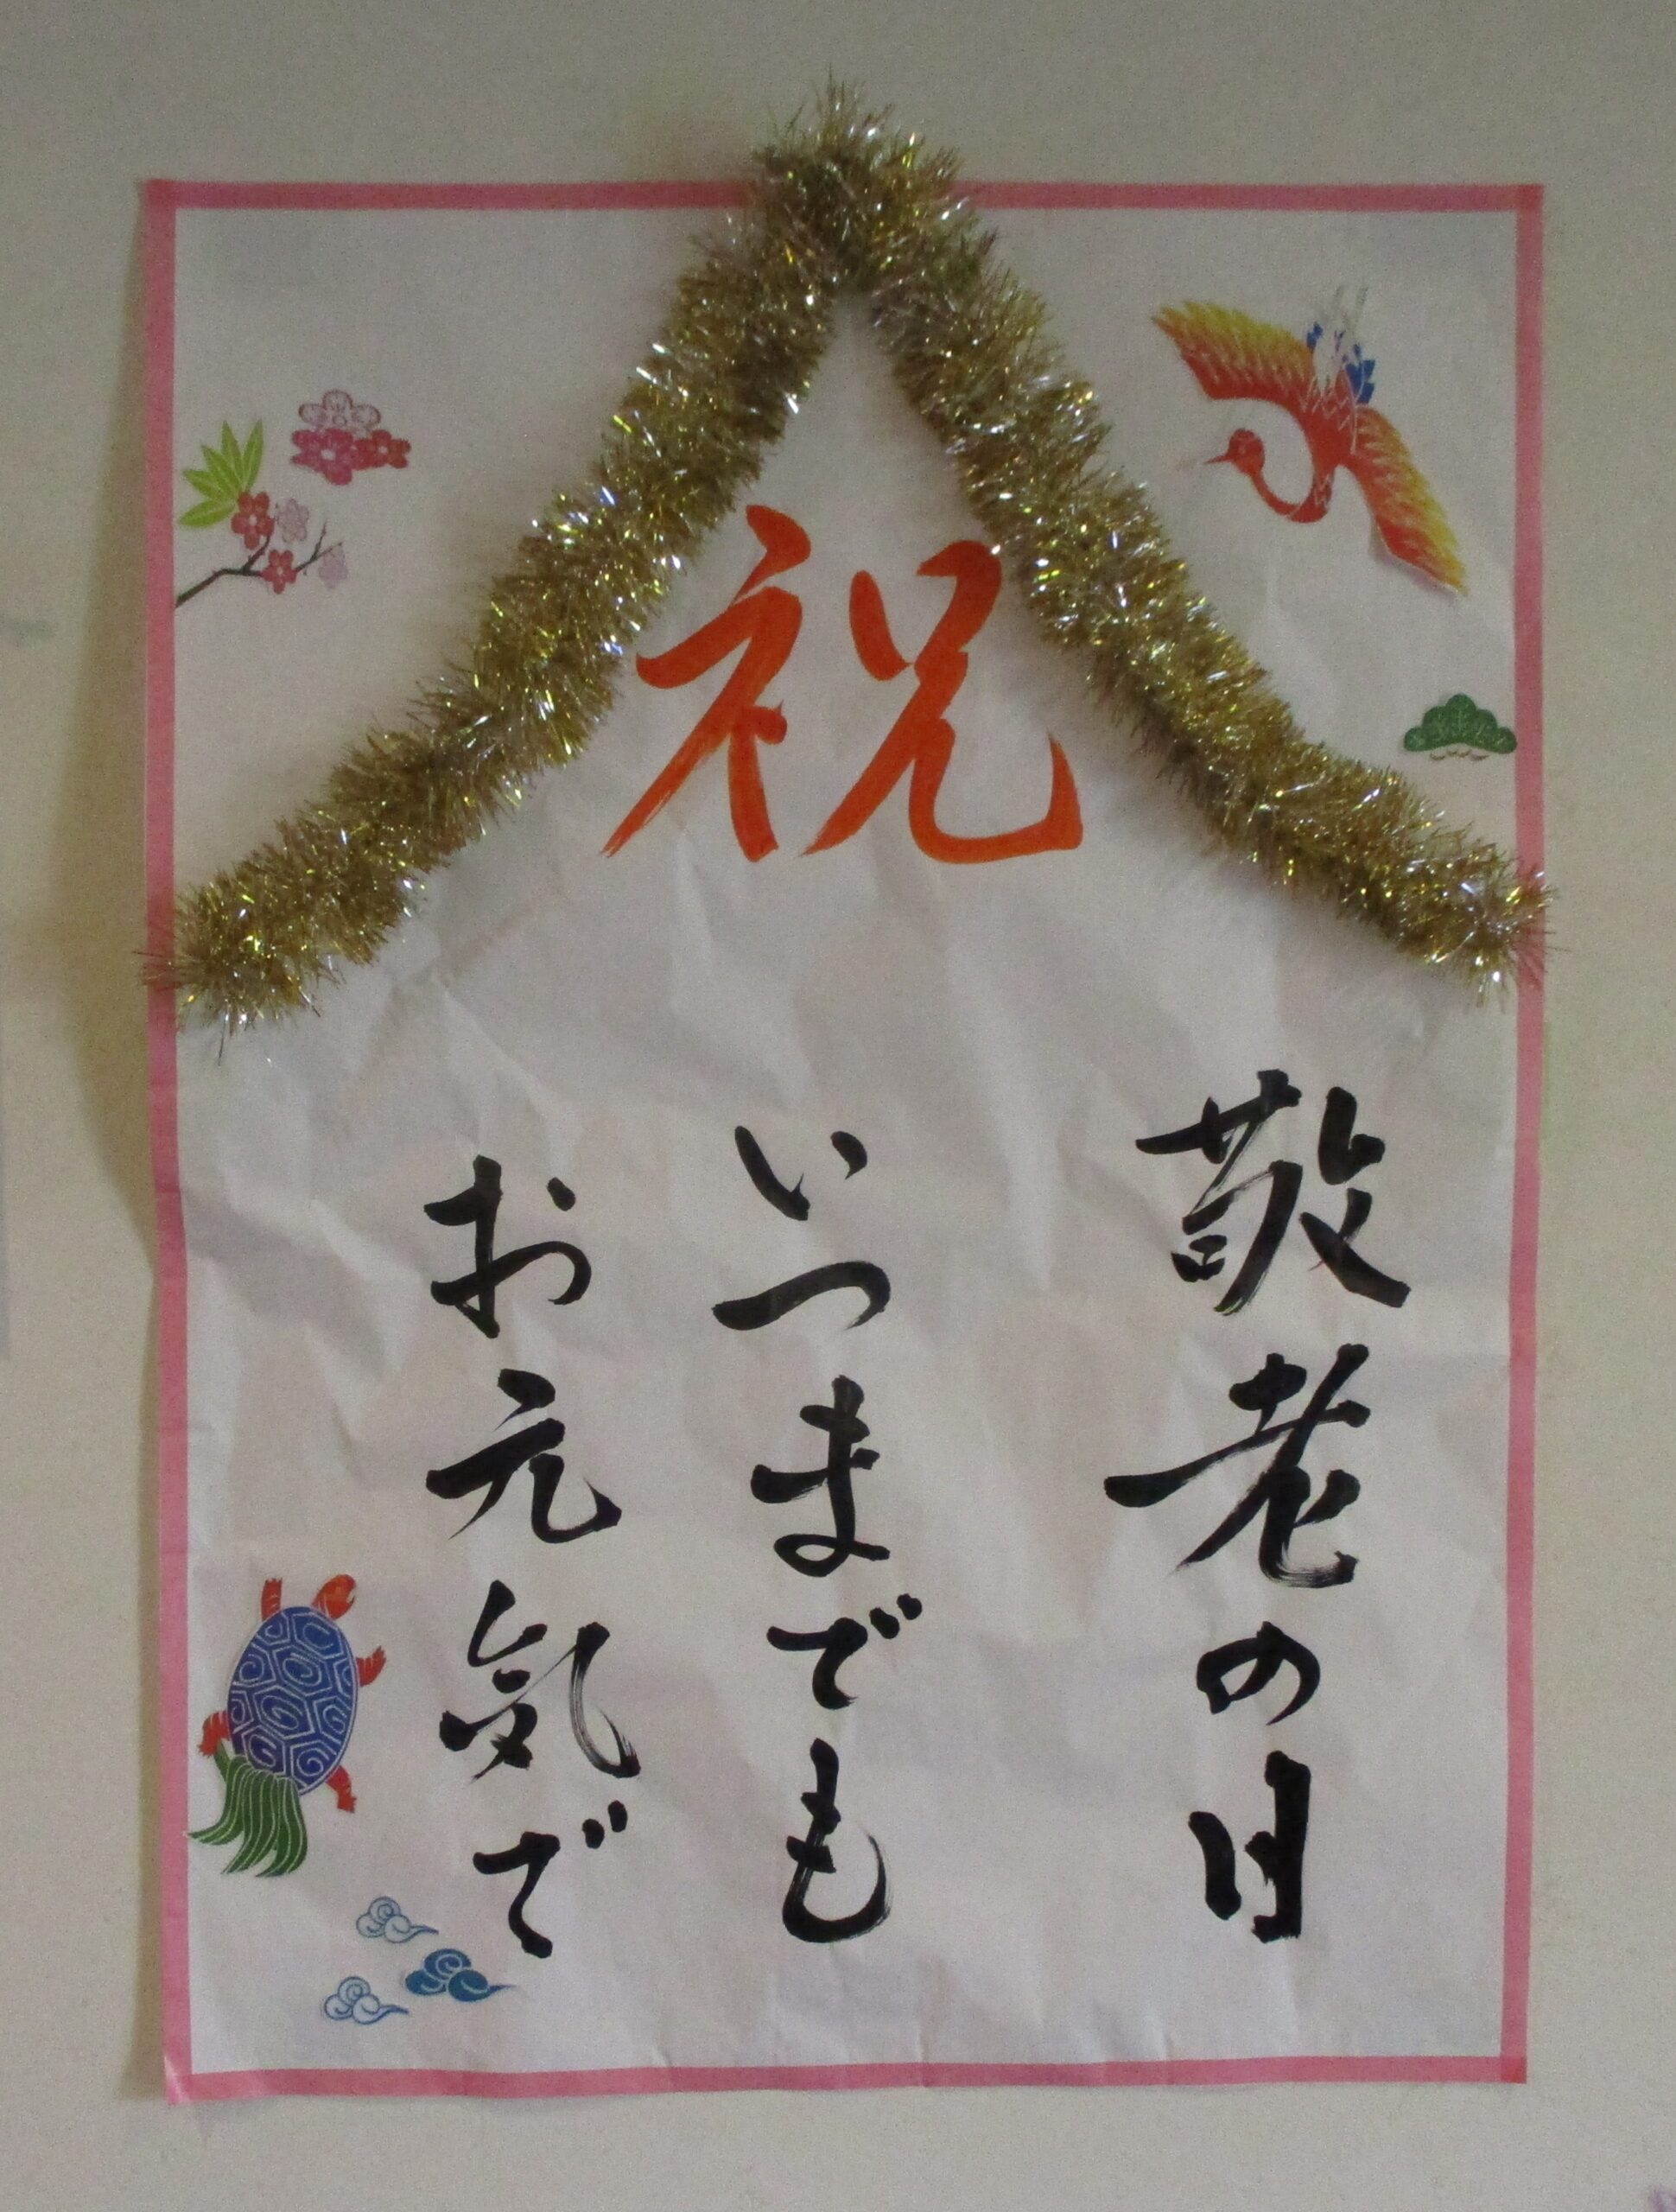 祝
敬老の日
いつまでも
お元気で